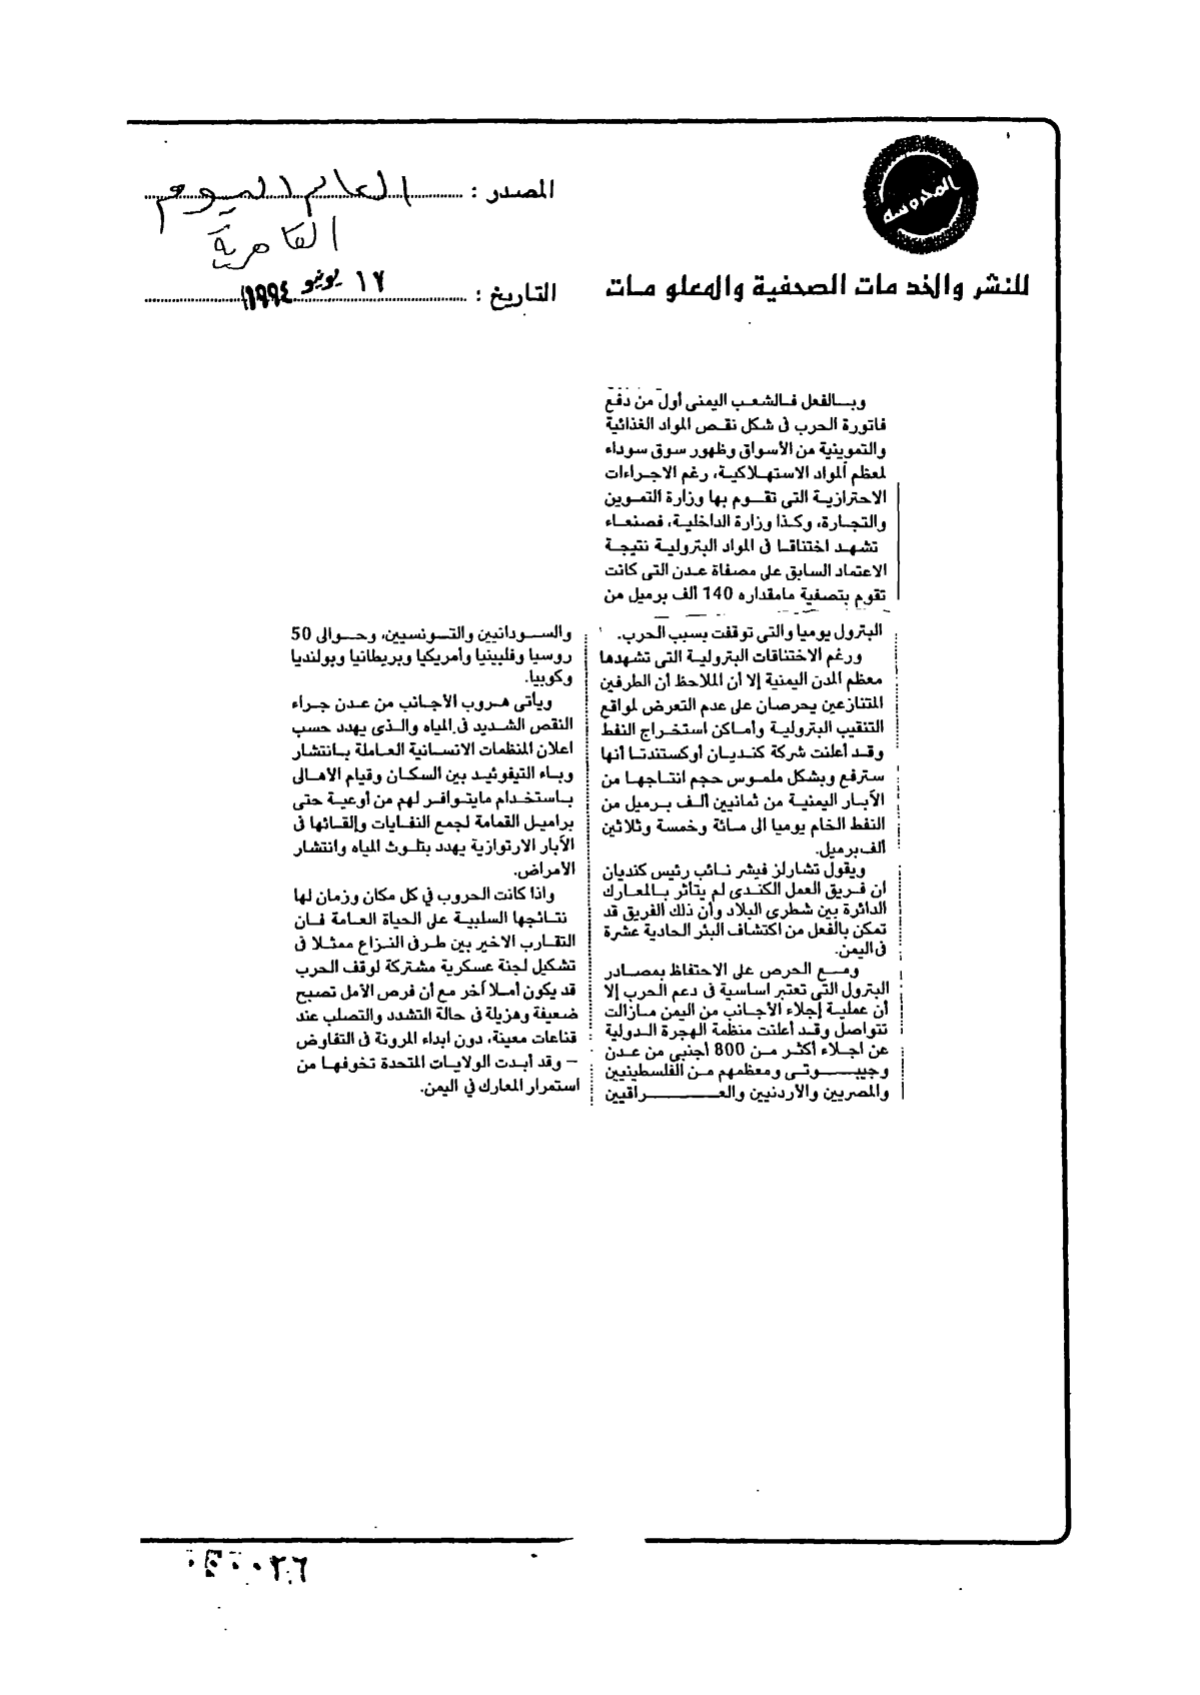 المحروسة
للنشر والخدمات الصحفية والمعلومات
المصدر : العالم اليوم
القاهرية
التاريخ : ١٧ يونيو ١٩٩٤
وبالفعل فالشعب اليمنى أول من دفع
فاتورة الحرب فى شكل نقص المواد الغذائية
والتموينية من الأسواق وظهور سوق سوداء
لمعظم المواد الاستهلاكية، رغم الاجراءات
الاحترازية التى تقوم بها وزارة التموين
والتجارة، وكذا وزارة الداخلية، فصنعاء
تشهد اختناقا فى المواد البترولية نتيجة
الاعتماد السابق على مصفاة عدن التى كانت
تقوم بتصفية مامقداره 140 الف برميل من
البترول يوميا والتى توقفت بسبب الحرب.
ورغم الاختناقات البترولية التى تشهدها
معظم المدن اليمنية إلا أن الملاحظ أن الطرفين
المتنازعين يحرصان على عدم التعرض لمواقع
التنقيب البترولية وأماكن استخراج النفط
وقد أعلنت شركة كنديان أوكستندتا أنها
سترفع وبشكل ملموس حجم انتاجها من
الآبار اليمنية من ثمانيين ألف برميل من
النفط الخام يوميا الى مائة وخمسة وثلاثين
ألف برميل.
ويقول تشارلز فيشر نائب رئيس كنديان
ان فريق العمل الكندى لم يتأثر بالمعارك
الدائرة بين شطرى البلاد وأن ذلك الفريق قد
تمكن بالفعل من اكتشاف البئر الحادية عشرة
فى اليمن.
ومع الحرص على الاحتفاظ بمصادر
البترول التى تعتبر اساسية فى دعم الحرب إلا
أن عملية إجلاء الأجانب من اليمن مازالت
تتواصل وقد أعلنت منظمة الهجرة الدولية
عن اجلاء أكثر من 800 أجنبى من عدن
وجيبوتى ومعظمهم من الفلسطينيين
والمصريين والأردنيين والعراقيين
والسودانيين والتونسيين، وحوالى 50
روسيا وفلبينيا وأمريكيا وبريطانيا وبولنديا
وكوبيا.
ويأتى هروب الأجانب من عدن جراء
النقص الشديد فى المياه والذى يهدد حسب
اعلان المنظمات الانسانية العاملة بانتشار
وباء التيفوئيد بين السكان وقيام الاهالى
باستخدام مايتوافر لهم من أوعية حتى
براميل القمامة لجمع النفايات وإلقائها فى
الآبار الارتوازية يهدد بتلوث المياه وانتشار
الأمراض.
واذا كانت الحروب في كل مكان وزمان لها
نتائجها السلبية على الحياة العامة فان
التقارب الاخير بين طرفى النزاع ممثلا فى
تشكيل لجنة عسكرية مشتركة لوقف الحرب
قد يكون أملا آخر مع أن فرص الأمل تصبح
ضعيفة وهزيلة فى حالة التشدد والتصلب عند
قناعات معينة، دون ابداء المرونة فى التفاوض
– وقد أبدت الولايات المتحدة تخوفها من
استمرار المعارك في اليمن.